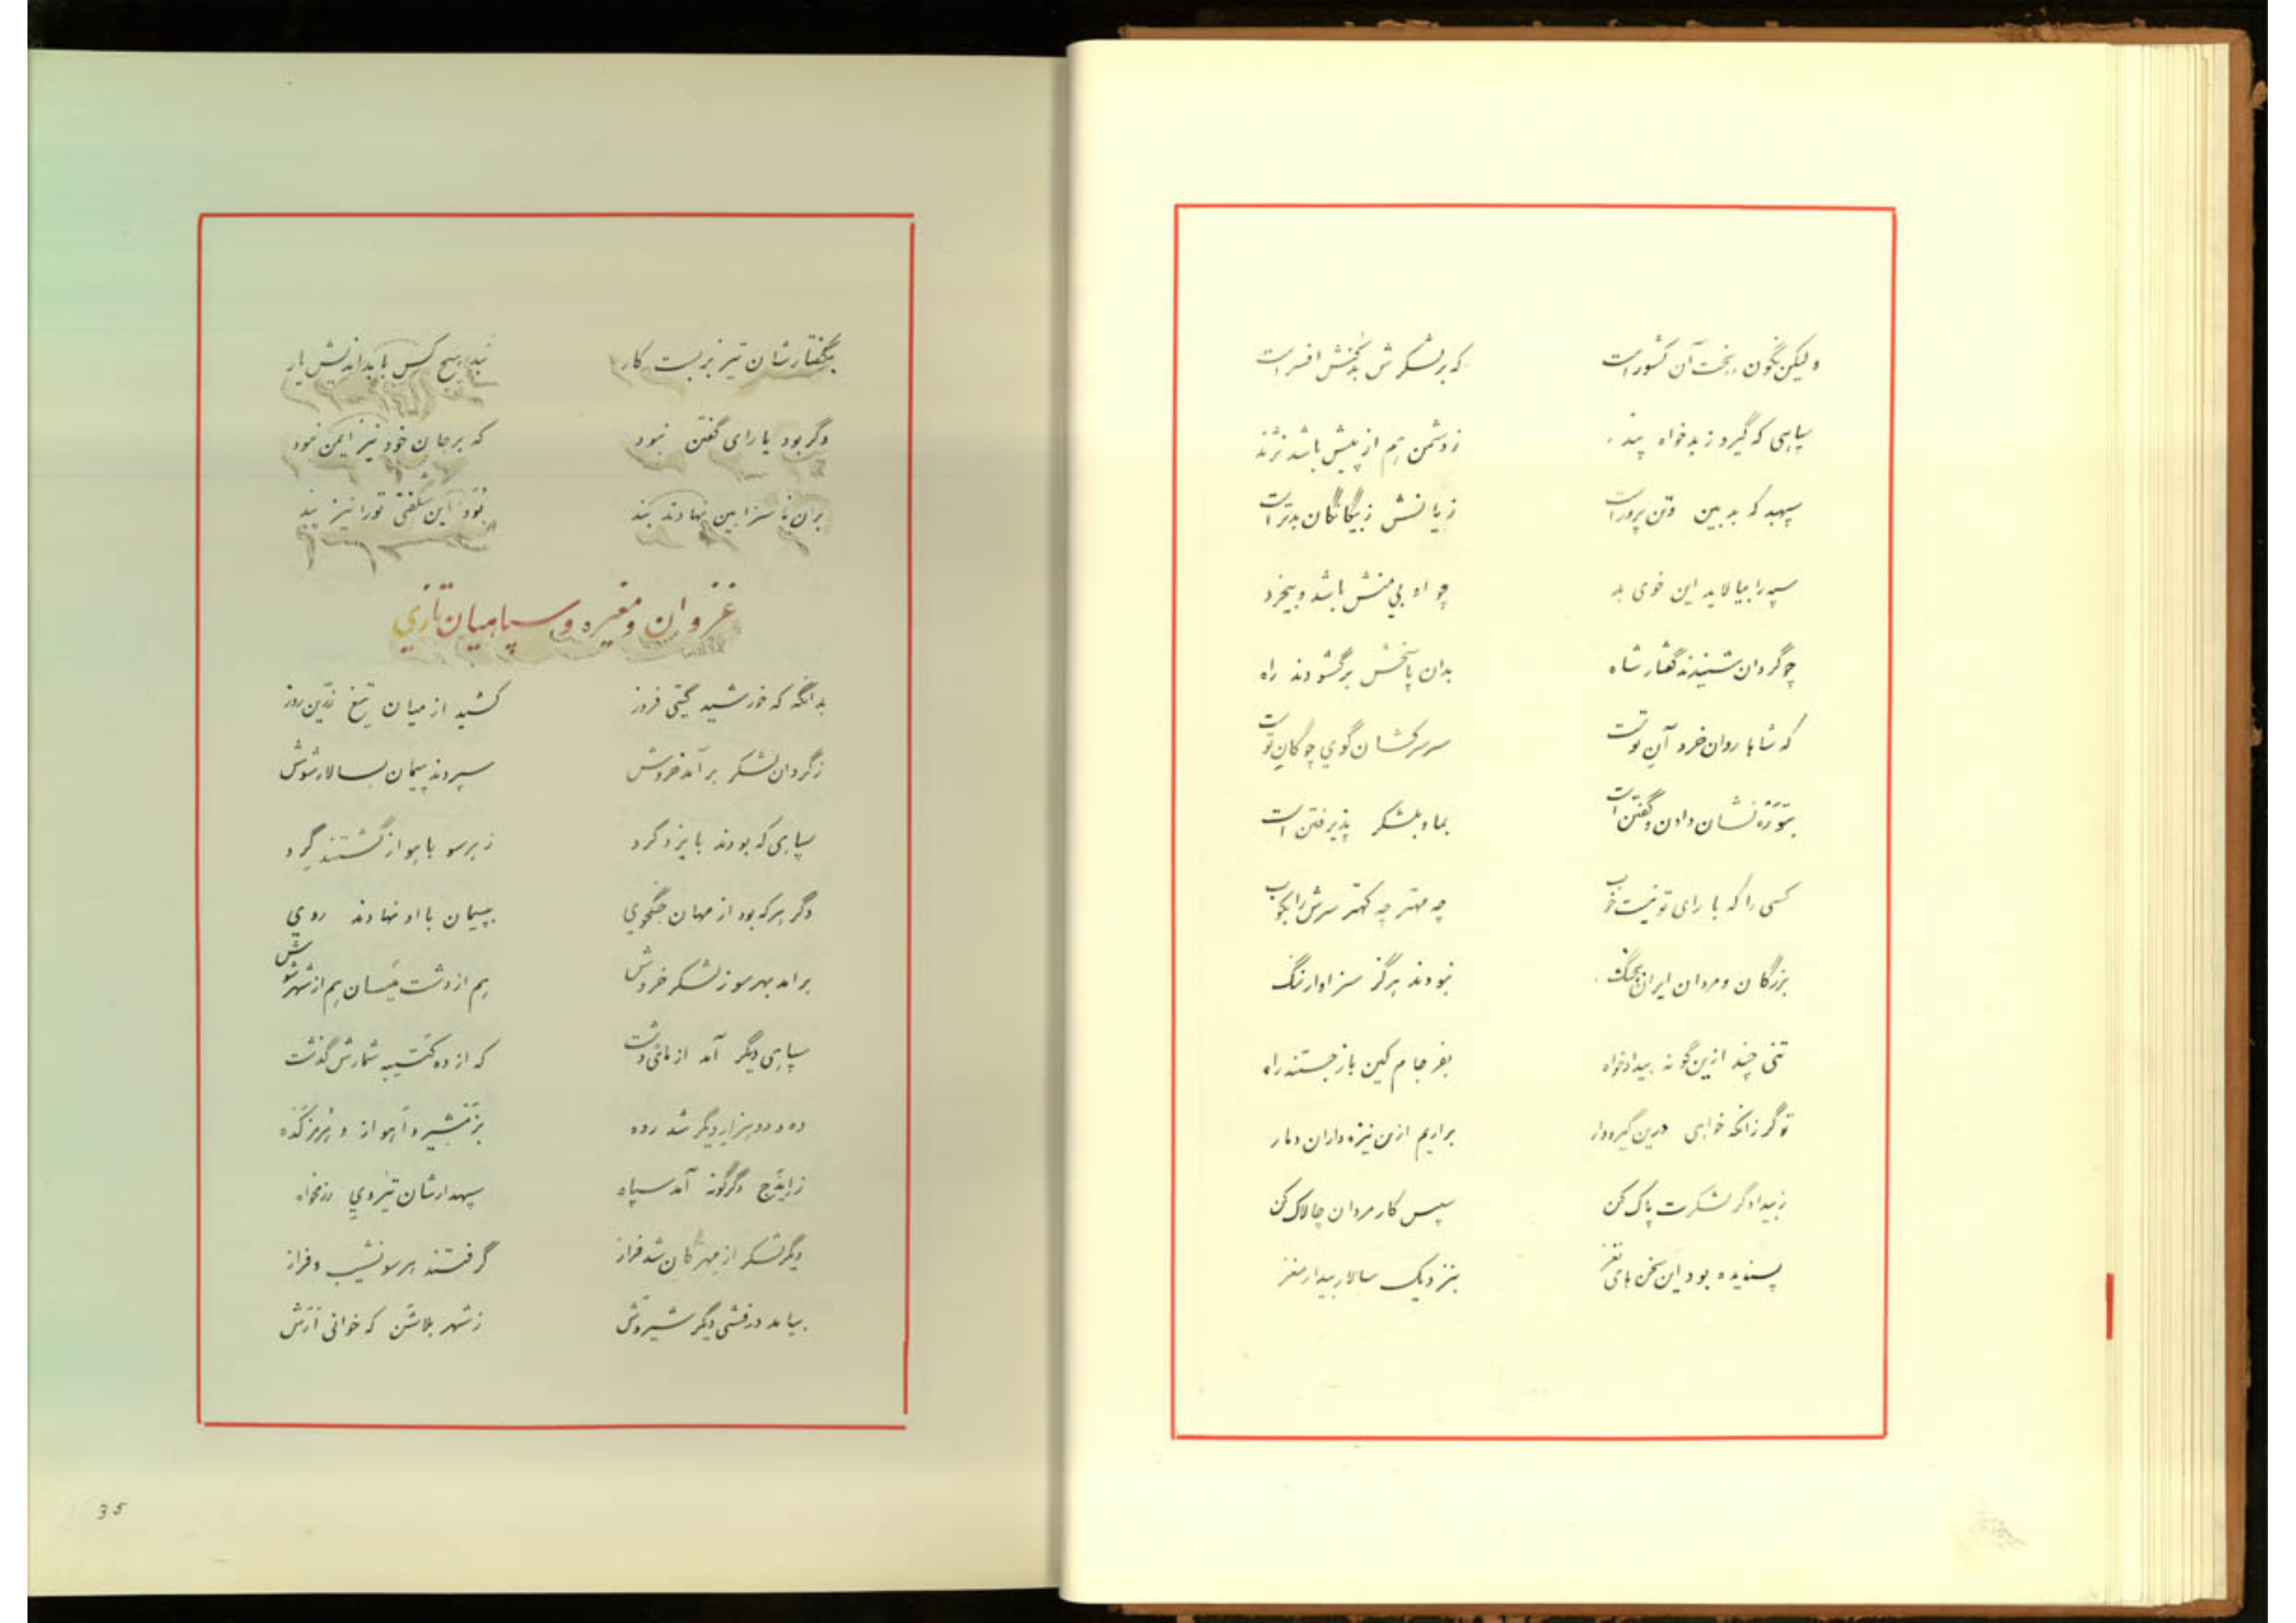 ولیکن نگون بخت آن کشور است که بر لشکرش بدکنش افسر است
سپاهی که گیرد ز بدخواه پند ز دشمن هم از پیش باشد نژند
سپهبد که بدبین و تن پرور است زیانش ز بیگانگان بدتر است
سپه را بیالاید این خوی بد چو او بی منش باشد و بیخرد
چو گردان شنیدند گفتار شاه بدان پاسخش برگشودند راه
که شاها روان خرد آن توست سر سرکشان گوی چوگان توست
بتو ره نشان دادن و گفتن است بما و بلشکر پذیرفتن است
کسی را که با رای تو نیست خوب چه مهتر چه کهتر سرش را بکوب
بزرگان و مردان ایران بجنگ نبودند هرگز سزاوار ننگ
تنی چند ازین گونه بیدادخواه بفرجام کین باز جستند راه
تو گر زانکه خواهی درین گیرودار براریم ازین نیزه داران دمار
ز بیدادگر لشکرت پاک کن سپس کار مردان چالاک کن
پسندیده بود این سخن های نغز بنزدیک سالار بیدار مغز
بگفتارشان تیز بربست کار نبد هیچ کس با بداندیش یار
دگر بود یارای گفتن نبود که بر جان خود نیز ایمن نبود
بران ناسزا بین نهادند بند بود این شگفتی تو را نیز پند
غزوان و مغیره و سپاهیان تازی
بدانگه که خورشید گیتی فروز کشید از میان تیغ زرین روز
ز گردان لشکر برآمد خروش سپردند پیمان بسالار شوش
سپاهی که بودند با یزدگرد ز هرسو باهواز گشتند گرد
دگر هر که بود از مهان جنگجوی بپیمان با او نهادند روی
برامد بهرسو ز لشکر خروش هم از دشت میسان هم از شهر شوش
سپاهی دیگر آمد از مای دشت که از ده کتیبه شمارش گذشت
ده و دو هزار دیگر شد رده بزمشیر و اهواز و هرمز کده
ز ایذج دگرگونه آمد سپاه سپهدارشان تیروی رزمخواه
دیگر لشکر از مهرگان شد فراز گرفتند هرسو نشیب و فراز
بیامد درفشی دیگر شیروش ز شهر بلاشن که خوانی ارش
35